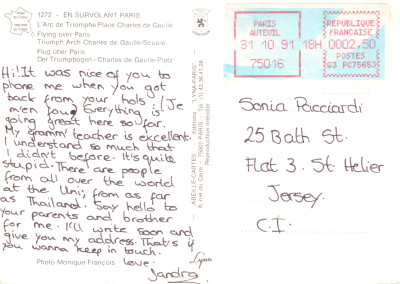 1272 - EN SURVOLANT PARIS
L'Arc de Triomphe Place Charles de Gaulle
Flying over Paris
Triumph Arch Charles de Gaulle-Square
Flug über Paris
Der Triumpbogen - Charles de Gaulle-Platz
Hi! It was nice of you to
phone me when you got
back from your hols! (Je
m'en fou). Everything is
going great here so far.
My gramm/ teacher is excellent.
I understand so much that
I didn't before. It's quite
stupid. There are people
from all over the world
at the Uni; from as far
as Thailand. Say hello to
your parents and brother
for me. I'll write soon and
give you my address. That's if
you wanna keep in touch.
Love.
Sandra
Photo Monique François
Lyna
Editions "LYNA-PARIS"
ABEILLE-CARTES
8, rue du Caire - 75002 PARIS - Tél. (1) 42.36.41.28
Reproduction interdite
PARIS
AUTEUIL
31 10 91 18H
75016
REPUBLIQUE
FRANCAISE
0002,50
POSTES
G3 PC75653
Sonia Pacciardi
25 Bath St.
Flat 3. St. Helier
Jersey.
C.I.